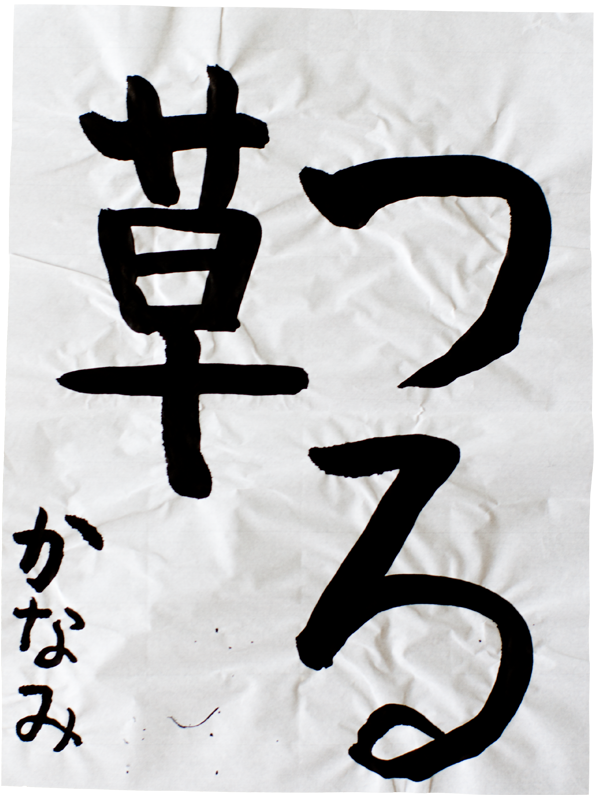 つる
草
かなみ